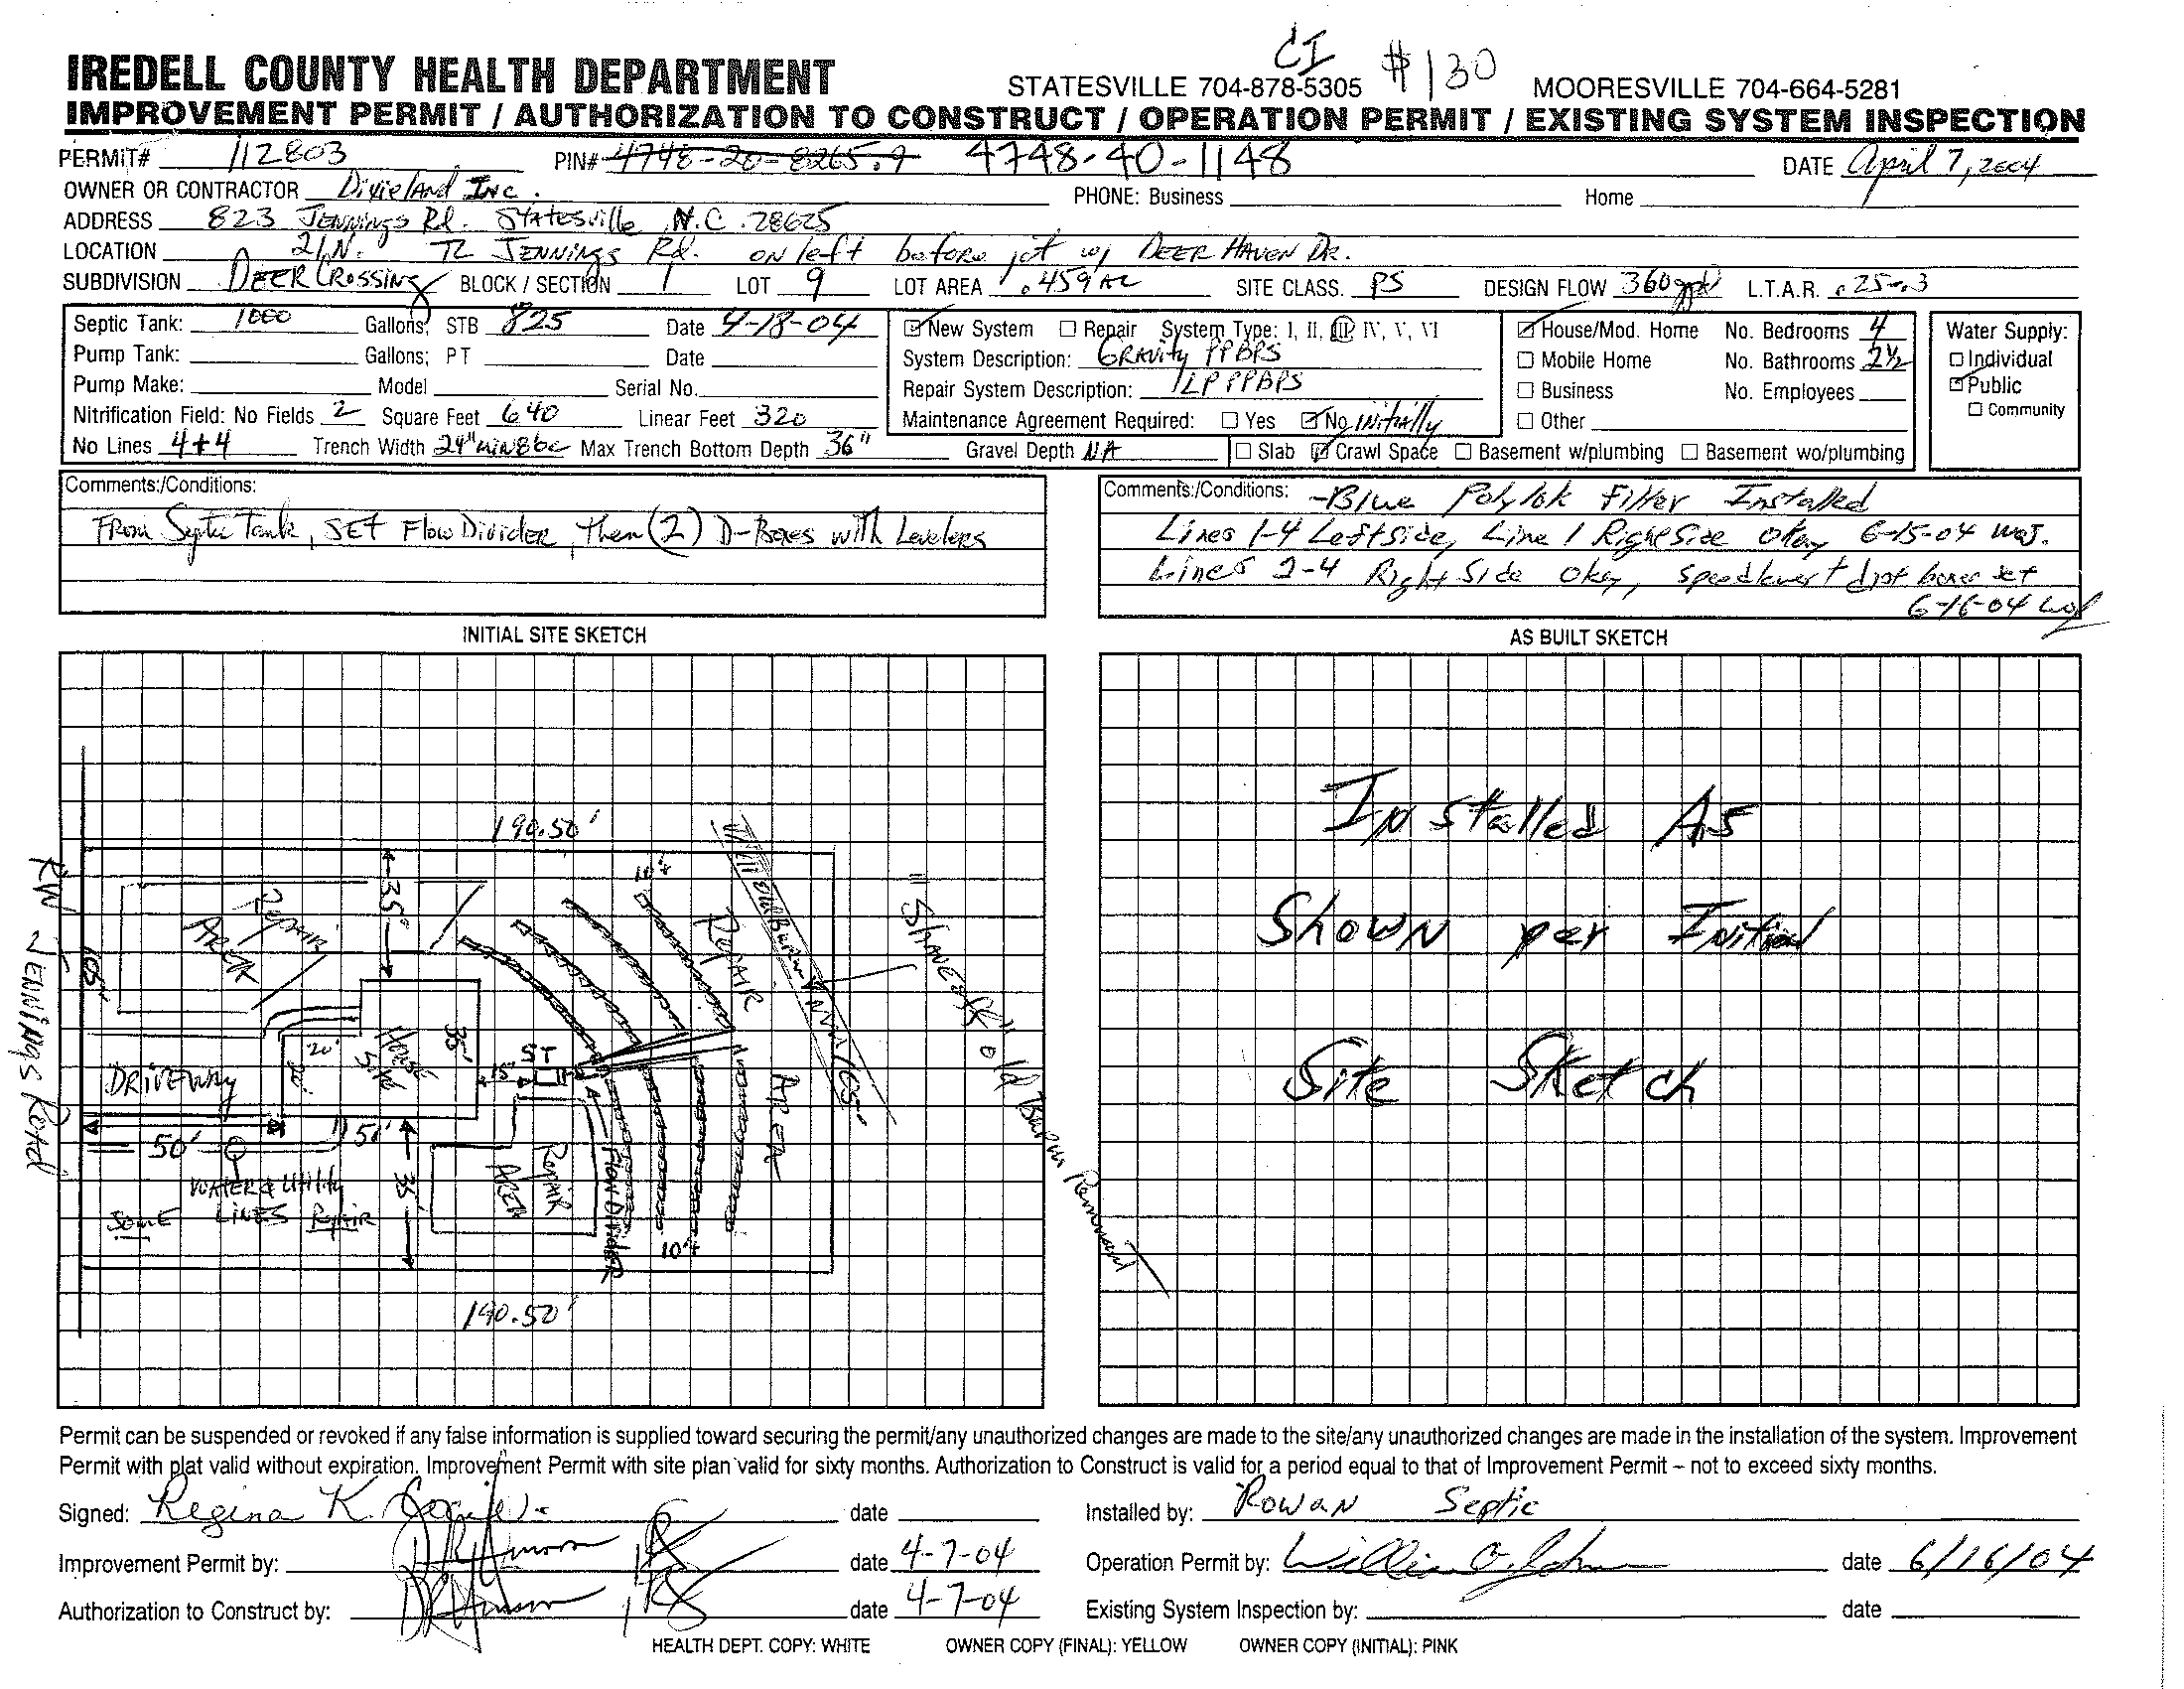 CI #130
IREDELL COUNTY HEALTH DEPARTMENT STATESVILLE 704-878-5305 MOORESVILLE 704-664-5281
IMPROVEMENT PERMIT / AUTHORIZATION TO CONSTRUCT / OPERATION PERMIT / EXISTING SYSTEM INSPECTION
PERMIT# 112803 PIN# 4748-20-8265.9 4748-40-1148 DATE April 7, 2004
OWNER OR CONTRACTOR Dixieland Inc. PHONE: Business Home
ADDRESS 823 Jennings Rd. Statesville N.C. 28625
LOCATION 21N. TL Jennings Rd. on left before jct w/ Deer Haven Dr.
SUBDIVISION Deer Crossing BLOCK / SECTION 1 LOT 9 LOT AREA .459 AC SITE CLASS. PS DESIGN FLOW 360 gpd L.T.A.R. .25-.3
Septic Tank: 1000 Gallons; STB 825 Date 4-18-04
Pump Tank: Gallons; PT Date
Pump Make: Model Serial No.
Nitrification Field: No Fields 2 Square Feet 640 Linear Feet 320
No Lines 4+4 Trench Width 24" min 8' oc Max Trench Bottom Depth 36" Gravel Depth NA
New System Repair System Type: I, II, III, IV, V, VI
System Description: Gravity PPBPS
Repair System Description: LPPPBPS
Maintenance Agreement Required: Yes No initially
Slab Crawl Space Basement w/plumbing Basement wo/plumbing
House/Mod. Home No. Bedrooms 4
Mobile Home No. Bathrooms 2½
Business No. Employees
Other
Water Supply:
Individual
Public
Community
Comments:/Conditions:
From Septic Tank, SET Flow Divider, then (2) D-Boxes with Levelers
Comments:/Conditions: -Blue Polylok Filter Installed
Lines 1-4 Leftside, Line 1 Right Side okay 6-15-04 WOJ.
Lines 2-4 Right Side okay, speedlevers + dist boxes set
6-16-04 WOJ
INITIAL SITE SKETCH
190.50'
R/W Jennings Road
105'
Repair Area
35'
10'+
Repair Area
"Shaver" old Burm Remnant
105'
House Site
35'
20'
20'
ST
15'
Driveway
50'
51'
35'
Water & Utility Lines
Some Repair
Repair Area
Flow Divider
10'+
190.50'
AS BUILT SKETCH
Installed As
Shown per Initial
Site Sketch
Permit can be suspended or revoked if any false information is supplied toward securing the permit/any unauthorized changes are made to the site/any unauthorized changes are made in the installation of the system. Improvement
Permit with plat valid without expiration. Improvement Permit with site plan valid for sixty months. Authorization to Construct is valid for a period equal to that of Improvement Permit – not to exceed sixty months.
Signed: Regina K. date
Installed by: Rowan Septic
Improvement Permit by: date 4-7-04
Operation Permit by: date 6/16/04
Authorization to Construct by: date 4-7-04
Existing System Inspection by: date
HEALTH DEPT. COPY: WHITE OWNER COPY (FINAL): YELLOW OWNER COPY (INITIAL): PINK